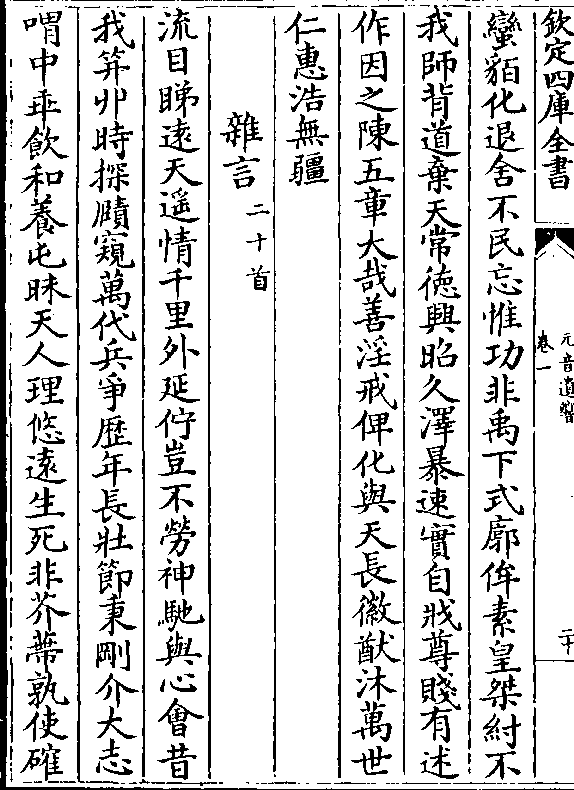 欽定四庫全書
元音遺響
卷一
二十
蠻貊化退舍不民忘惟功非禹下式廓侔素皇桀紂不
我師背道棄天常徳興昭久澤暴速實自戕尊賤有述
作因之陳五章大哉善淫戒俾化與天長徽猷沐萬世
仁惠浩無疆
雜言二十首
流目睇逺天遥情千里外延佇豈不勞神馳與心會昔
我笄丱時探賾窺萬代兵爭歴年長壯節秉剛介大志
喟中乖飲和養屯昧天人理悠逺生死非芥蔕孰使確